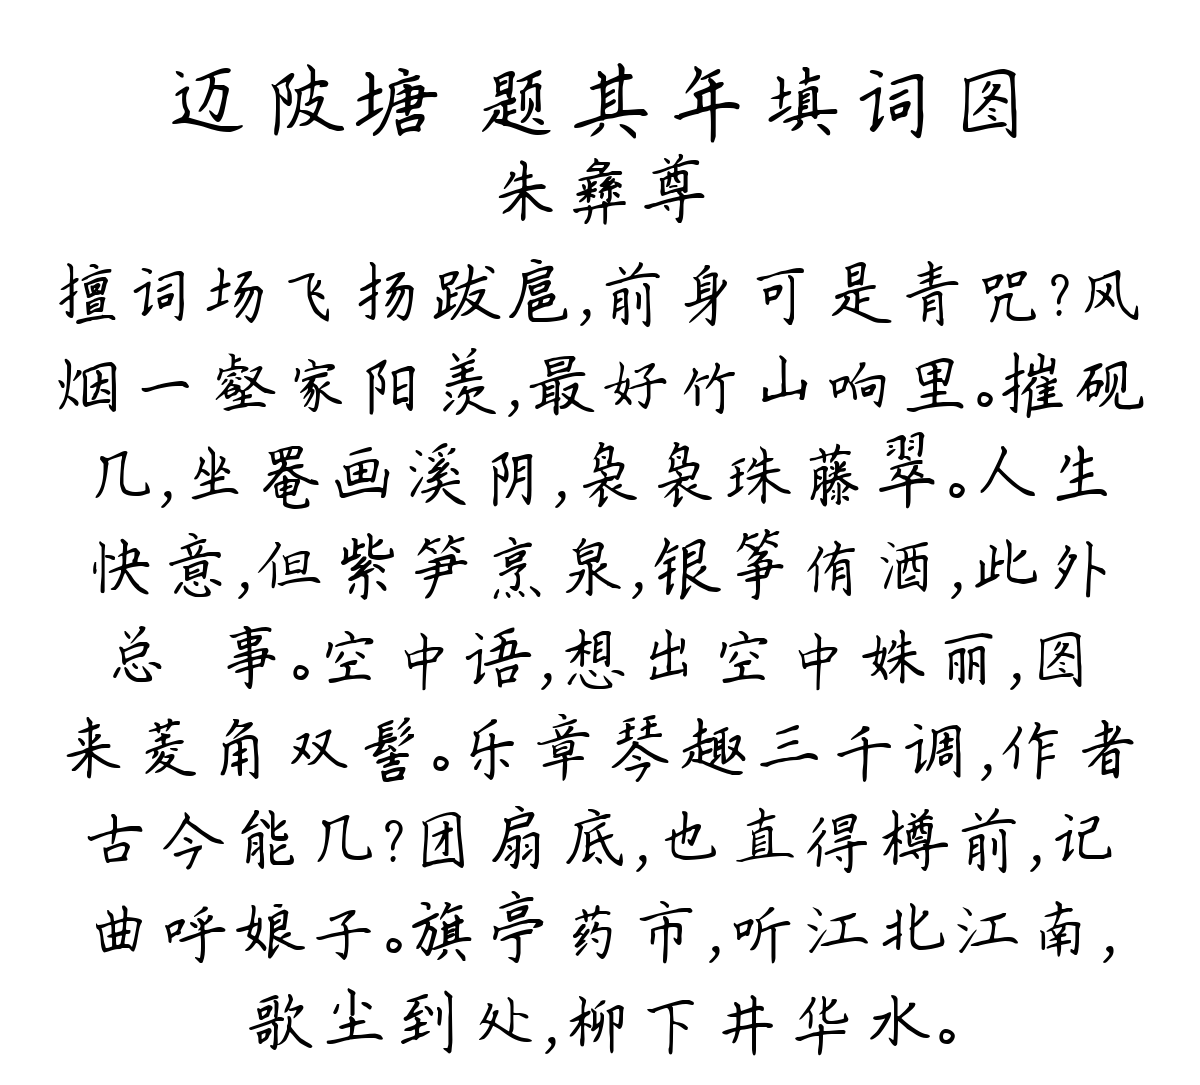 迈陂塘 题其年填词图
朱彝尊
擅词场飞扬跋扈,前身可是青咒?风
烟一壑家阳羡,最好竹山响里。摧砚
几,坐罨画溪阴,袅袅珠藤翠。人生
快意,但紫笋烹泉,银筝侑酒,此外
总 事。空中语,想出空中姝丽,图
来菱角双髻。乐章琴趣三千调,作者
古今能几?团扇底,也直得樽前,记
曲呼娘子。旗亭药市,听江北江南,
歌尘到处,柳下井华水。